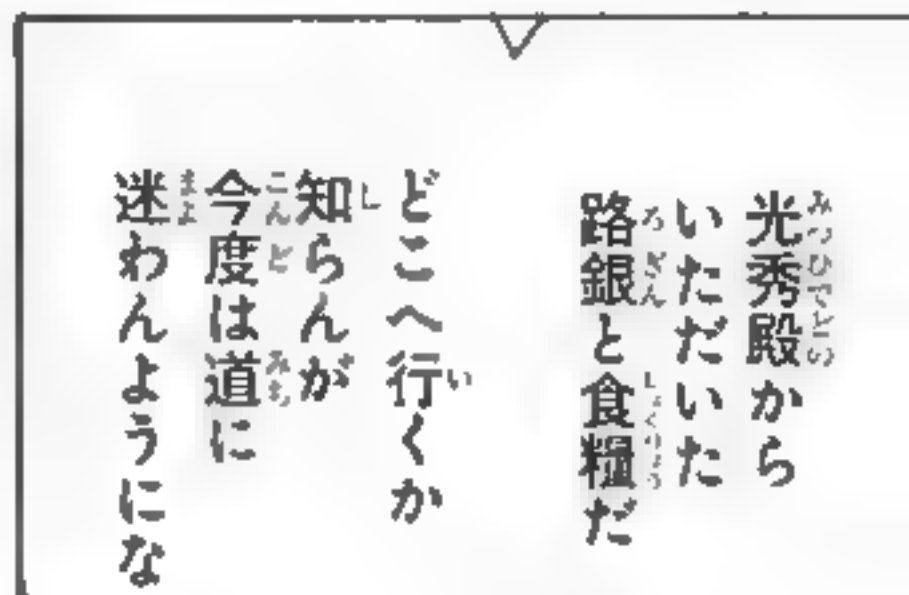 光秀殿から
いただいた
路銀と食糧だ
どこへ行くか
知らんが
今度は道に
迷わんようにな